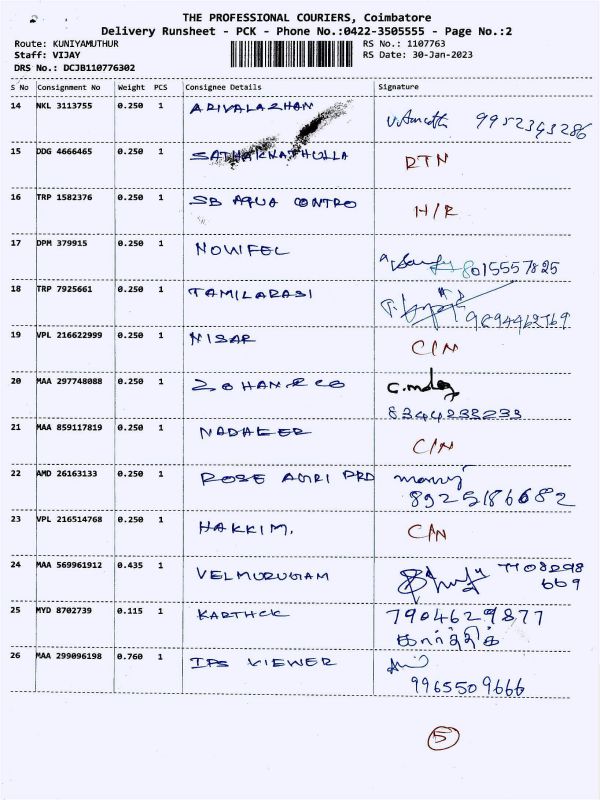 THE PROFESSIONAL COURIERS, Coimbatore
Delivery Runsheet - PCK - Phone No.:0422-3505555 - Page No.:2
Route: KUNIYAMUTHUR RS No.: 1107763
Staff: VIJAY RS Date: 30-Jan-2023
DRS No.: DCJB110776302
S No Consignment No Weight PCS Consignee Details Signature
14 NKL 3113755 0.250 1 ARIVALAZHAN
9952343286
15 DDG 4666465 0.250 1 SATHAKNATHULLA RTN
16 TRP 1582376 0.250 1 SB AQUA CONTRO H/R
17 DPM 379915 0.250 1 NOWFEL
8015557825
18 TRP 7925661 0.250 1 TAMILARASI
9894462769
19 VPL 216622999 0.250 1 NISAR C/N
20 MAA 297748088 0.250 1 ZOHAN RCO
8344238233
21 MAA 859117819 0.250 1 NADHEER C/N
22 AMD 26163133 0.250 1 ROSE AGRI PRD
8925186682
23 VPL 216514768 0.250 1 HAKKIM. C/N
24 MAA 569961912 0.435 1 VELMURUGAM
669
25 MYD 8702739 0.115 1 KARTHCK 7904629877
கார்த்திக்
26 MAA 299096198 0.760 1 IPS VIEWER
9965509666
5